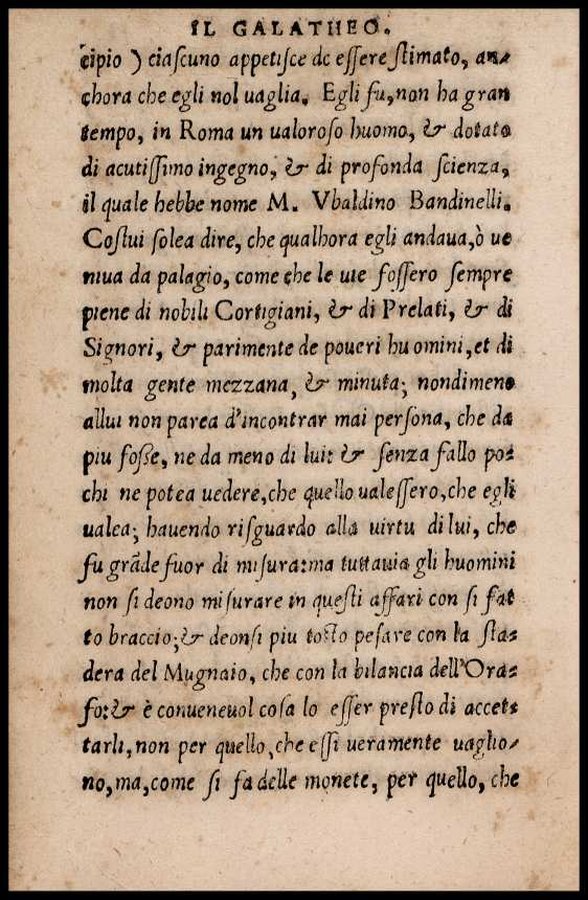 IL GALATHEO.
cipio ) ciaſcuno appetiſce de eſſere ſtimato, an-
chora che egli nol uaglia. Egli fu, non ha gran
tempo, in Roma un ualoroſo huomo, & dotato
di acutiſſimo ingegno, & di profonda ſcienza,
il quale hebbe nome M. Vbaldino Bandinelli.
Coſtui ſolea dire, che qualhora egli andaua, ò ue
niua da palagio, come che le uie foſſero ſempre
piene di nobili Cortigiani, & di Prelati, & di
Signori, & parimente de poueri huomini, et di
molta gente mezzana, & minuta; nondimeno
allui non parea d'incontrar mai perſona, che da
piu foſſe, ne da meno di lui: & ſenza fallo po-
chi ne potea uedere, che quello ualeſſero, che egli
ualea; hauendo riſguardo alla uirtu di lui, che
fu grãde fuor di miſura: ma tuttauia gli huomini
non ſi deono miſurare in queſti affari con ſi fat
to braccio; & deonſi piu toſto peſare con la ſta-
dera del Mugnaio, che con la bilancia dell'Ora-
fo: & è conueneuol coſa lo eſſer preſto di accet-
tarli, non per quello, che eſſi ueramente uaglio-
no, ma, come ſi fa delle monete, per quello, che